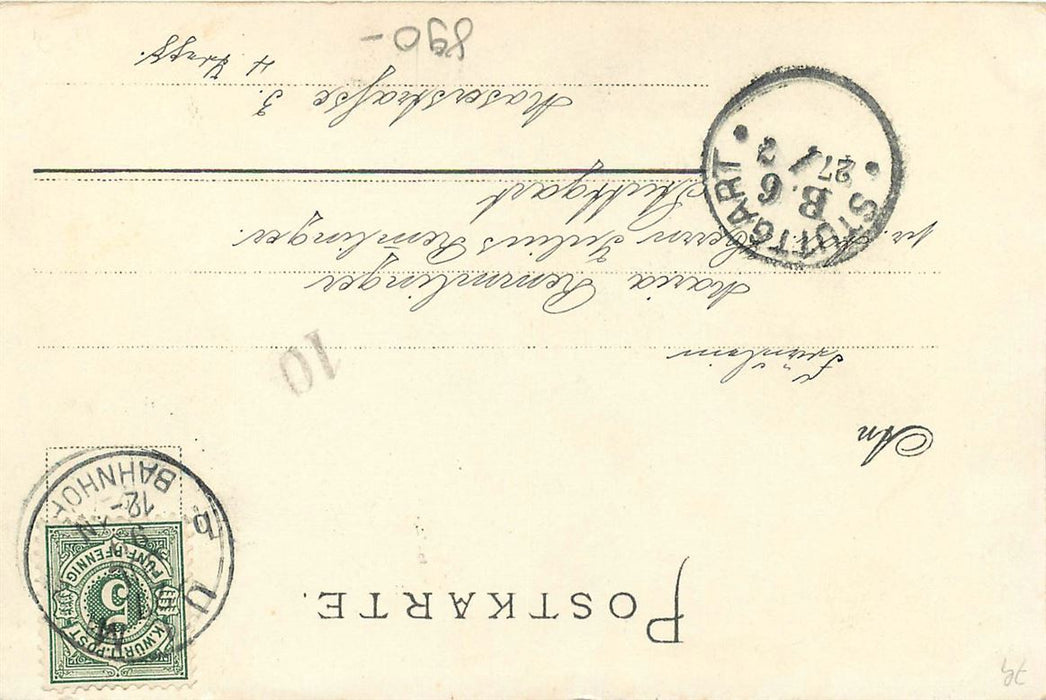 POSTKARTE.
K.WÜRTT.POST
5
FÜNF PFENNIG
ULM
BAHNHOF
12-
An
Fräulein
10
Maria Remmlinger
Herrn Julius Remlinger.
Stuttgart
STUTTGART
B. 6
27
Moserstrasse 3.
890-